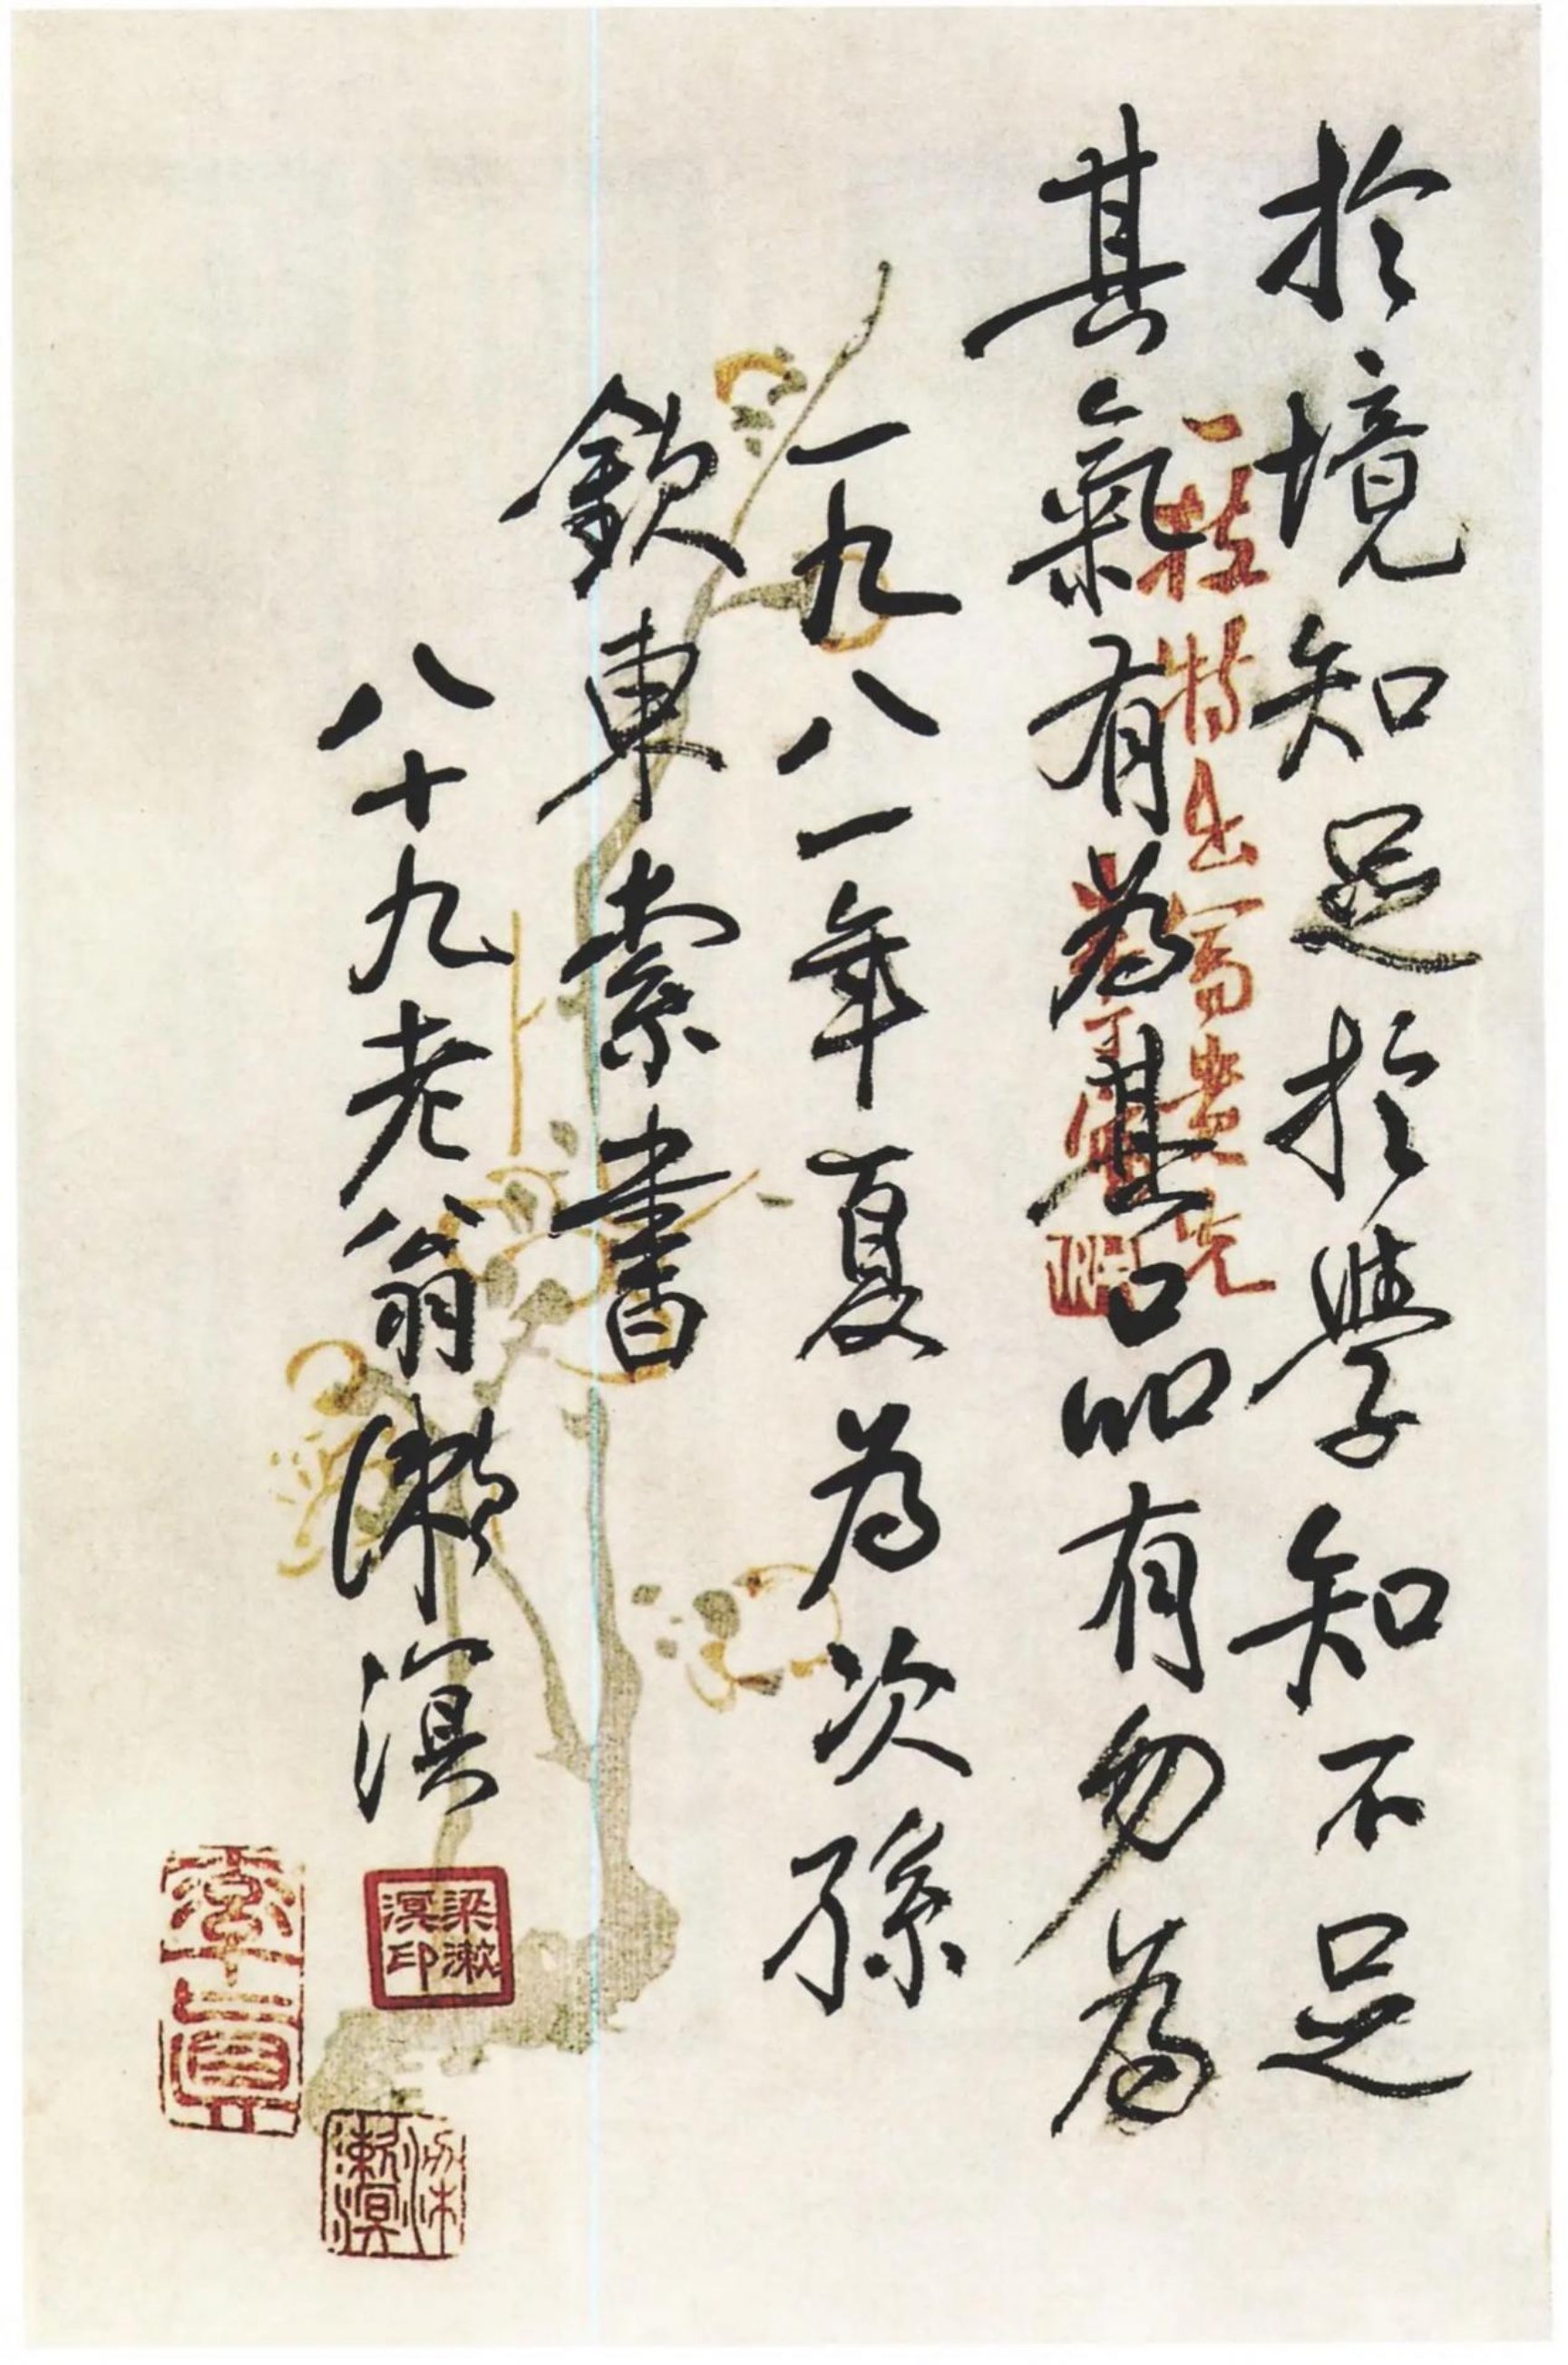 於境知知足於學知不足
其氣有為其品有勿為
一九八一年夏為次孫
欽東索書
八十九老翁漱溟
梁漱
溟印